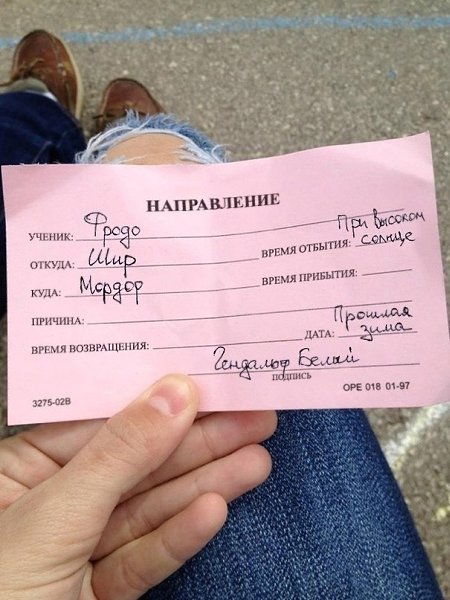 НАПРАВЛЕНИЕ
УЧЕНИК: Фродо
ОТКУДА: Шир
ВРЕМЯ ОТБЫТИЯ: При высоком солнце
КУДА: Мордор
ВРЕМЯ ПРИБЫТИЯ:
ПРИЧИНА:
ВРЕМЯ ВОЗВРАЩЕНИЯ:
ДАТА: Прошлая зима
Гендальф Белый
ПОДПИСЬ
3275-02B
OPE 018 01-97